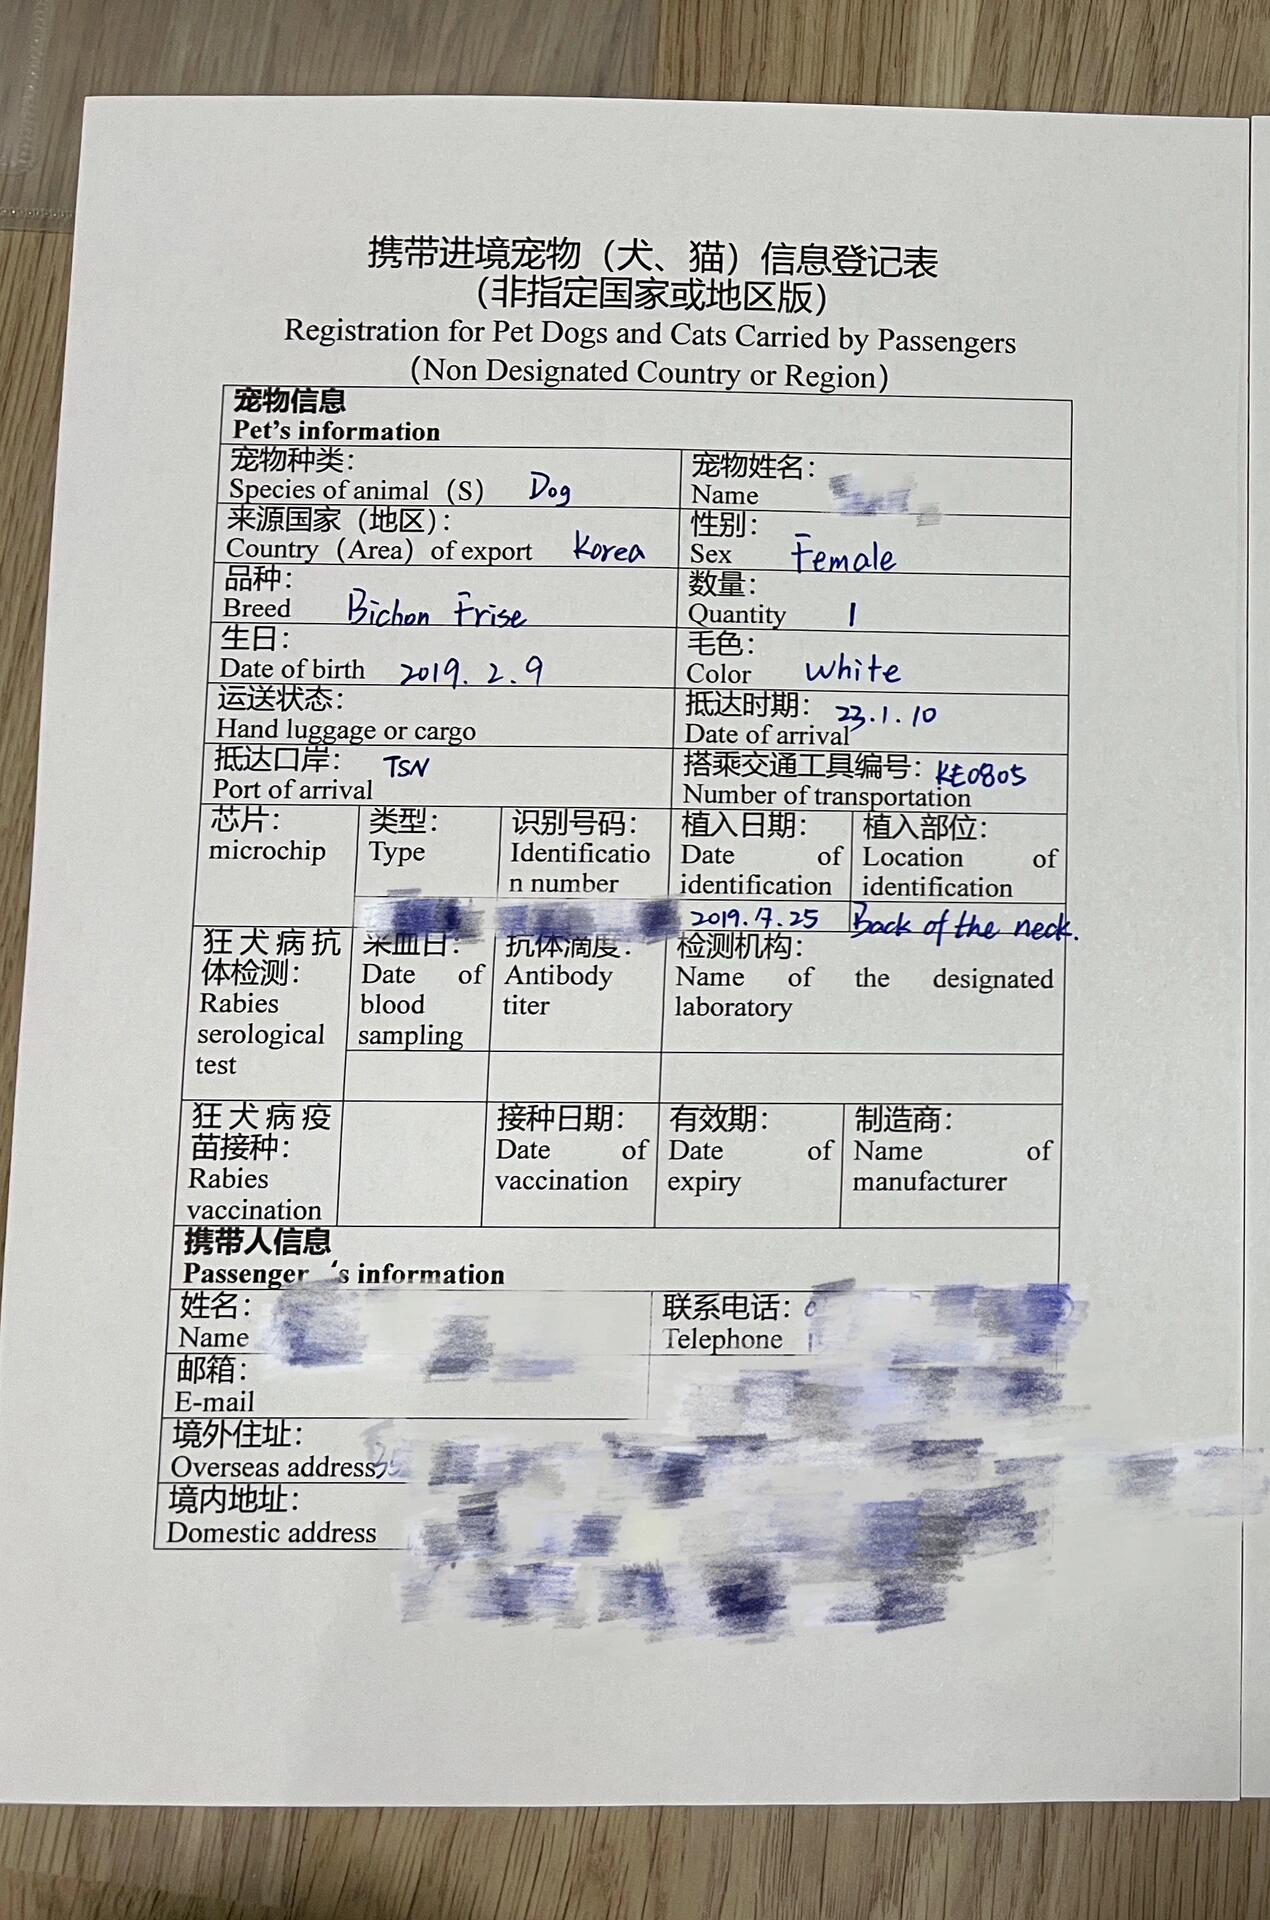 携带进境宠物（犬、猫）信息登记表
（非指定国家或地区版）
Registration for Pet Dogs and Cats Carried by Passengers
（Non Designated Country or Region）
宠物信息
Pet's information
宠物种类：
Species of animal（S） Dog
宠物姓名：
Name
来源国家（地区）：
Country（Area）of export Korea
性别：
Sex Female
品种：
Breed Bichon Frise
数量：
Quantity 1
生日：
Date of birth 2019. 2. 9
毛色：
Color white
运送状态：
Hand luggage or cargo
抵达时期： 23.1.10
Date of arrival
抵达口岸： TSN
Port of arrival
搭乘交通工具编号： KE0805
Number of transportation
芯片：
microchip
类型：
Type
识别号码：
Identificatio
n number
植入日期：
Date of
identification
植入部位：
Location of
identification
2019.7.25
Back of the neck.
狂犬病抗
体检测：
Rabies
serological
test
采血日：
Date of
blood
sampling
抗体滴度：
Antibody
titer
检测机构：
Name of the designated
laboratory
狂犬病疫
苗接种：
Rabies
vaccination
接种日期：
Date of
vaccination
有效期：
Date of
expiry
制造商：
Name of
manufacturer
携带人信息
Passenger ‘s information
姓名：
Name
联系电话：
Telephone
邮箱：
E-mail
境外住址：
Overseas address
境内地址：
Domestic address